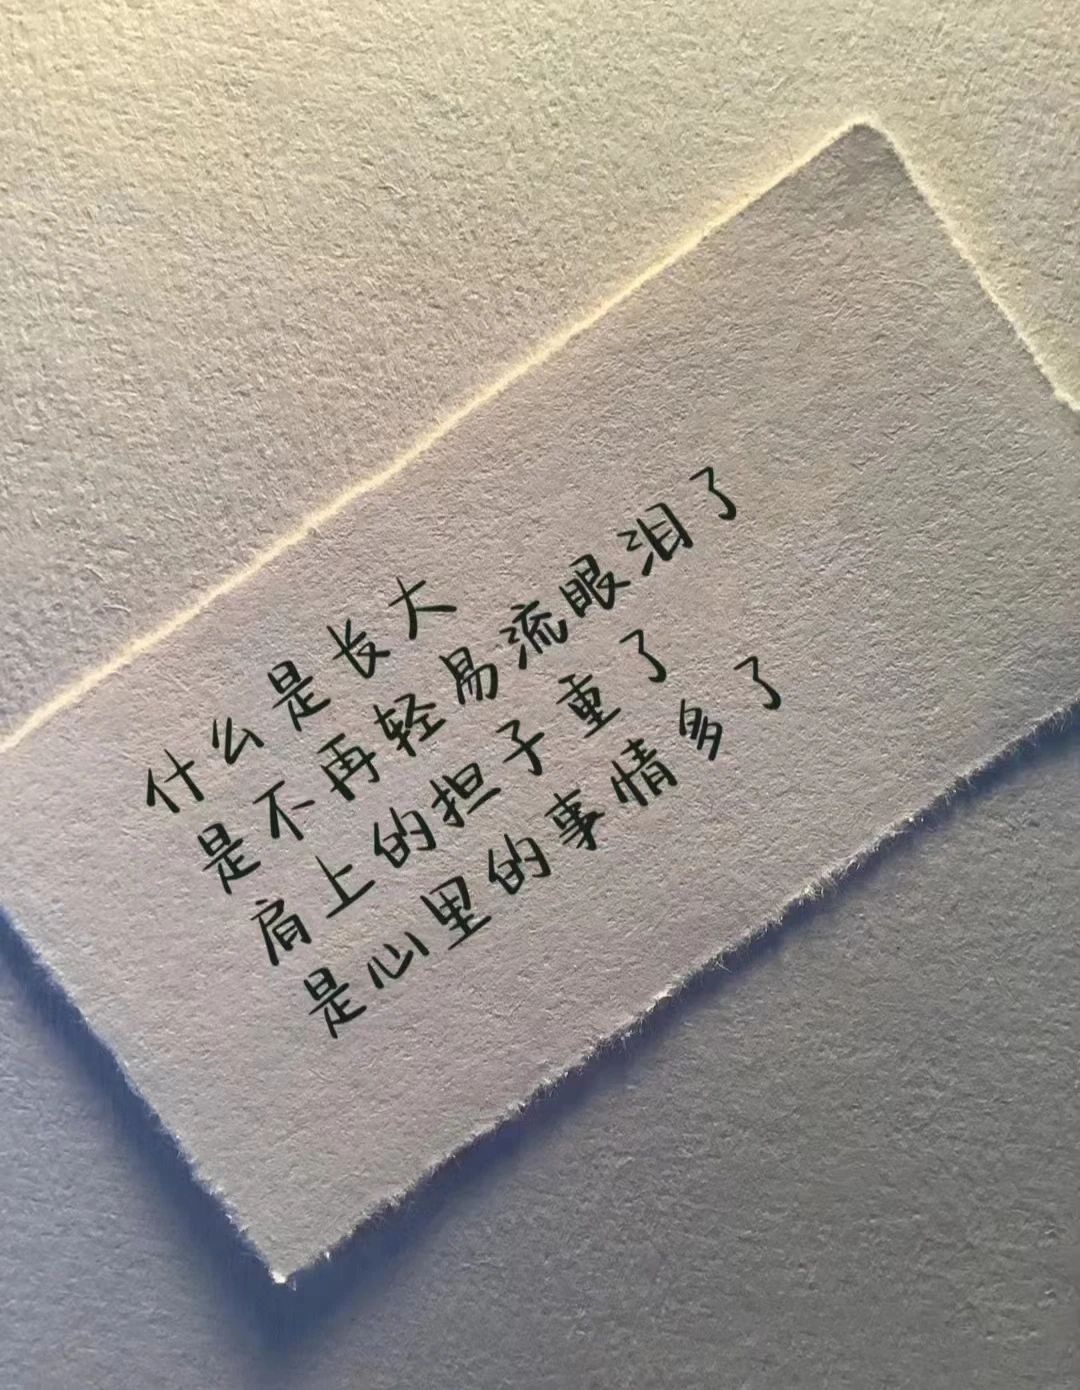 什么是长大
是不再轻易流眼泪了
肩上的担子重了
是心里的事情多了